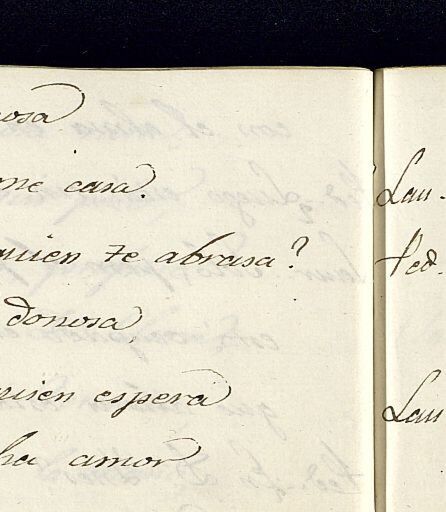 osa
me casa.
quien te abrasa?
donosa,
quien espera
ha amor
Lau.
Fed.
Lau